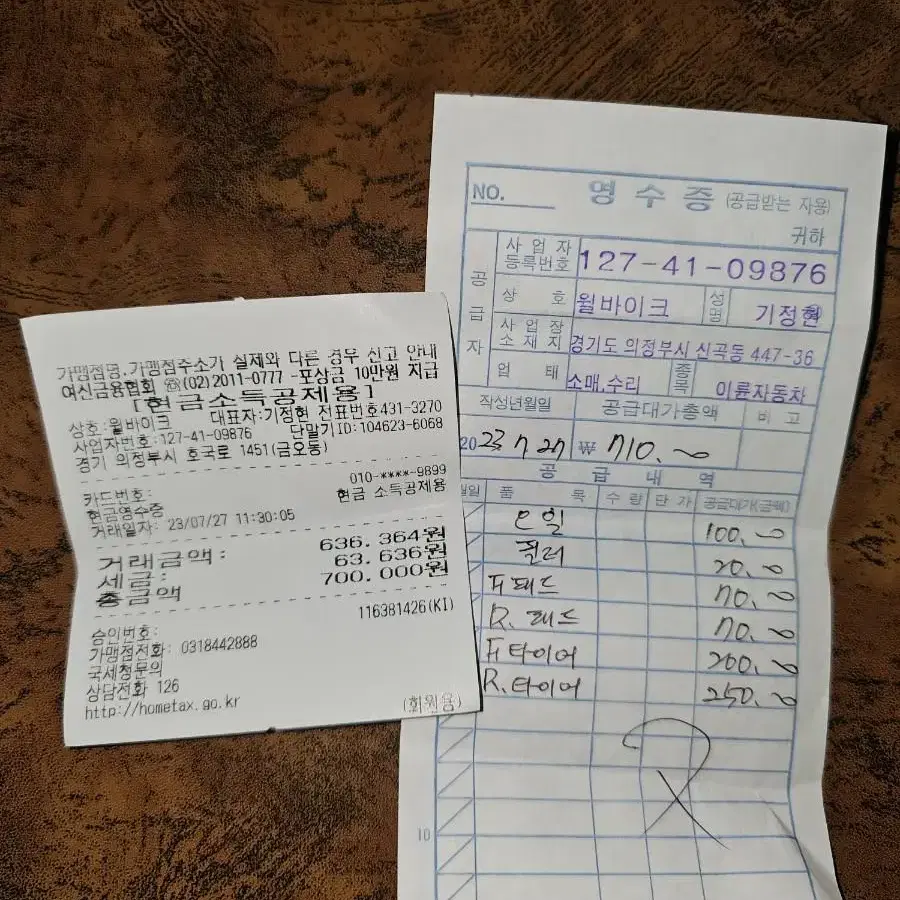 가맹점명.가맹점주소가 실제와 다른 경우 신고 안내
여신금융협회 ☎(02)2011-0777 -포상금 10만원 지급
[현금소득공제용]
상호:윌바이크 대표자:기정현 전표번호431-3270
사업자번호:127-41-09876 단말기ID:104623-6068
경기 의정부시 호국로 1451(금오동)
카드번호: 010-****-9899
현금영수증 현금 소득공제용
거래일자: 23/07/27 11:30:05
거래금액: 636.364원
세금: 63.636원
총금액 700.000원
승인번호: 116381426(KI)
가맹점전화: 0318442888
국세청문의
상담전화 126
http://hometax.go.kr
(회원용)
NO. 영수증 (공급받는 자용)
귀하
공급자
사업자등록번호 127-41-09876
상호 윌바이크 성명 기정현
사업장소재지 경기도 의정부시 신곡동 447-36
업태 소매,수리 종목 이륜자동차
작성년월일 공급대가총액 비고
2023 7 27 ₩ 710.
공급내역
월일 품목 수량 단가 공급대가(금액)
오일 100.
필터 20.
F패드 70.
R.패드 70.
F타이어 200.
R.타이어 250.
10